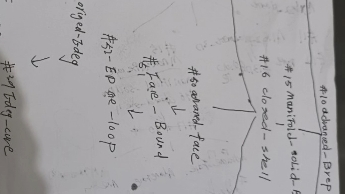 #10 advanced-Brep
#15 Manifold-solid-B
#16 closed-shell
#50 advand-face
#51 Face-Bound
#52-Edge-loop
oriyed-Edeg
#29 Edg-curve